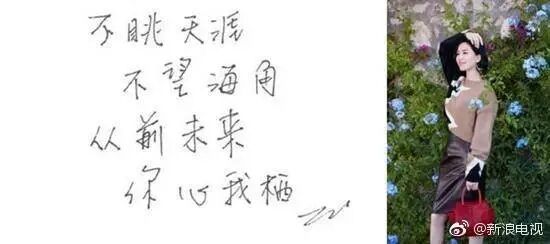 不眺天涯
不望海角
从前未来
你心我栖
@新浪电视